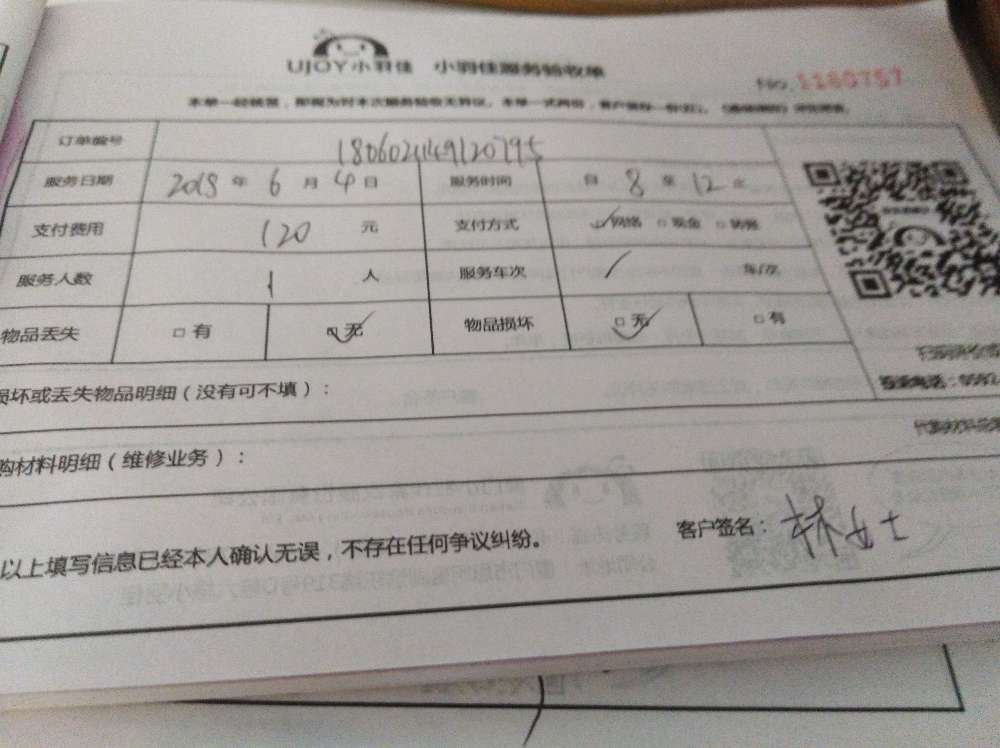 UJOY小羽佳 小羽佳服务验收单
No. 1160757
本单一经签署，即视为对本次服务验收无异议。本单一式两份，客户留存一份
订单编号 180602149120795
服务日期 2018 年 6 月 4 日 服务时间 自 8 至 12 止
支付费用 120 元 支付方式 网络 现金 转账
服务人数 1 人 服务车次 / 车/次
物品丢失 有 无 物品损坏 无 有
损坏或丢失物品明细（没有可不填）：
购材料明细（维修业务）：
以上填写信息已经本人确认无误，不存在任何争议纠纷。 客户签名：林女士